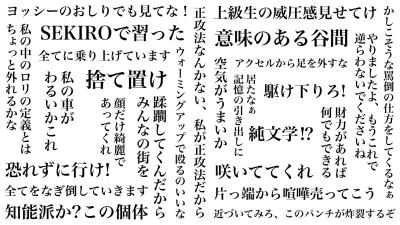 ヨッシーのおしりでも見てな！
SEKIROで習った
全てに乗り上げています
私の中のロリの定義とは
ちょっと外れるかな
私の車が
わるいかこれ
捨て置け
顔だけ綺麗で
あってくれ
みんなの街を
蹂躙してくんだから
ウォーミングアップで殴るのいいな
恐れずに行け!
全てをなぎ倒していきます
知能派か?この個体
正攻法なんかない、私が正攻法だから
上級生の威圧感見せてけ
意味のある谷間
アクセルから足を外すな
空気がうまいか
居たなぁ
記憶の引き出しに
駆け下りろ!
純文学!?
財力があれば
何でもできる
咲いててくれ
片っ端から喧嘩売ってこう
近づいてみろ、このパンチが炸裂するぞ
やりましたよ、もうこれで
逆らわないでくださいね
かしこそうな罵倒の仕方をしてくるなぁ